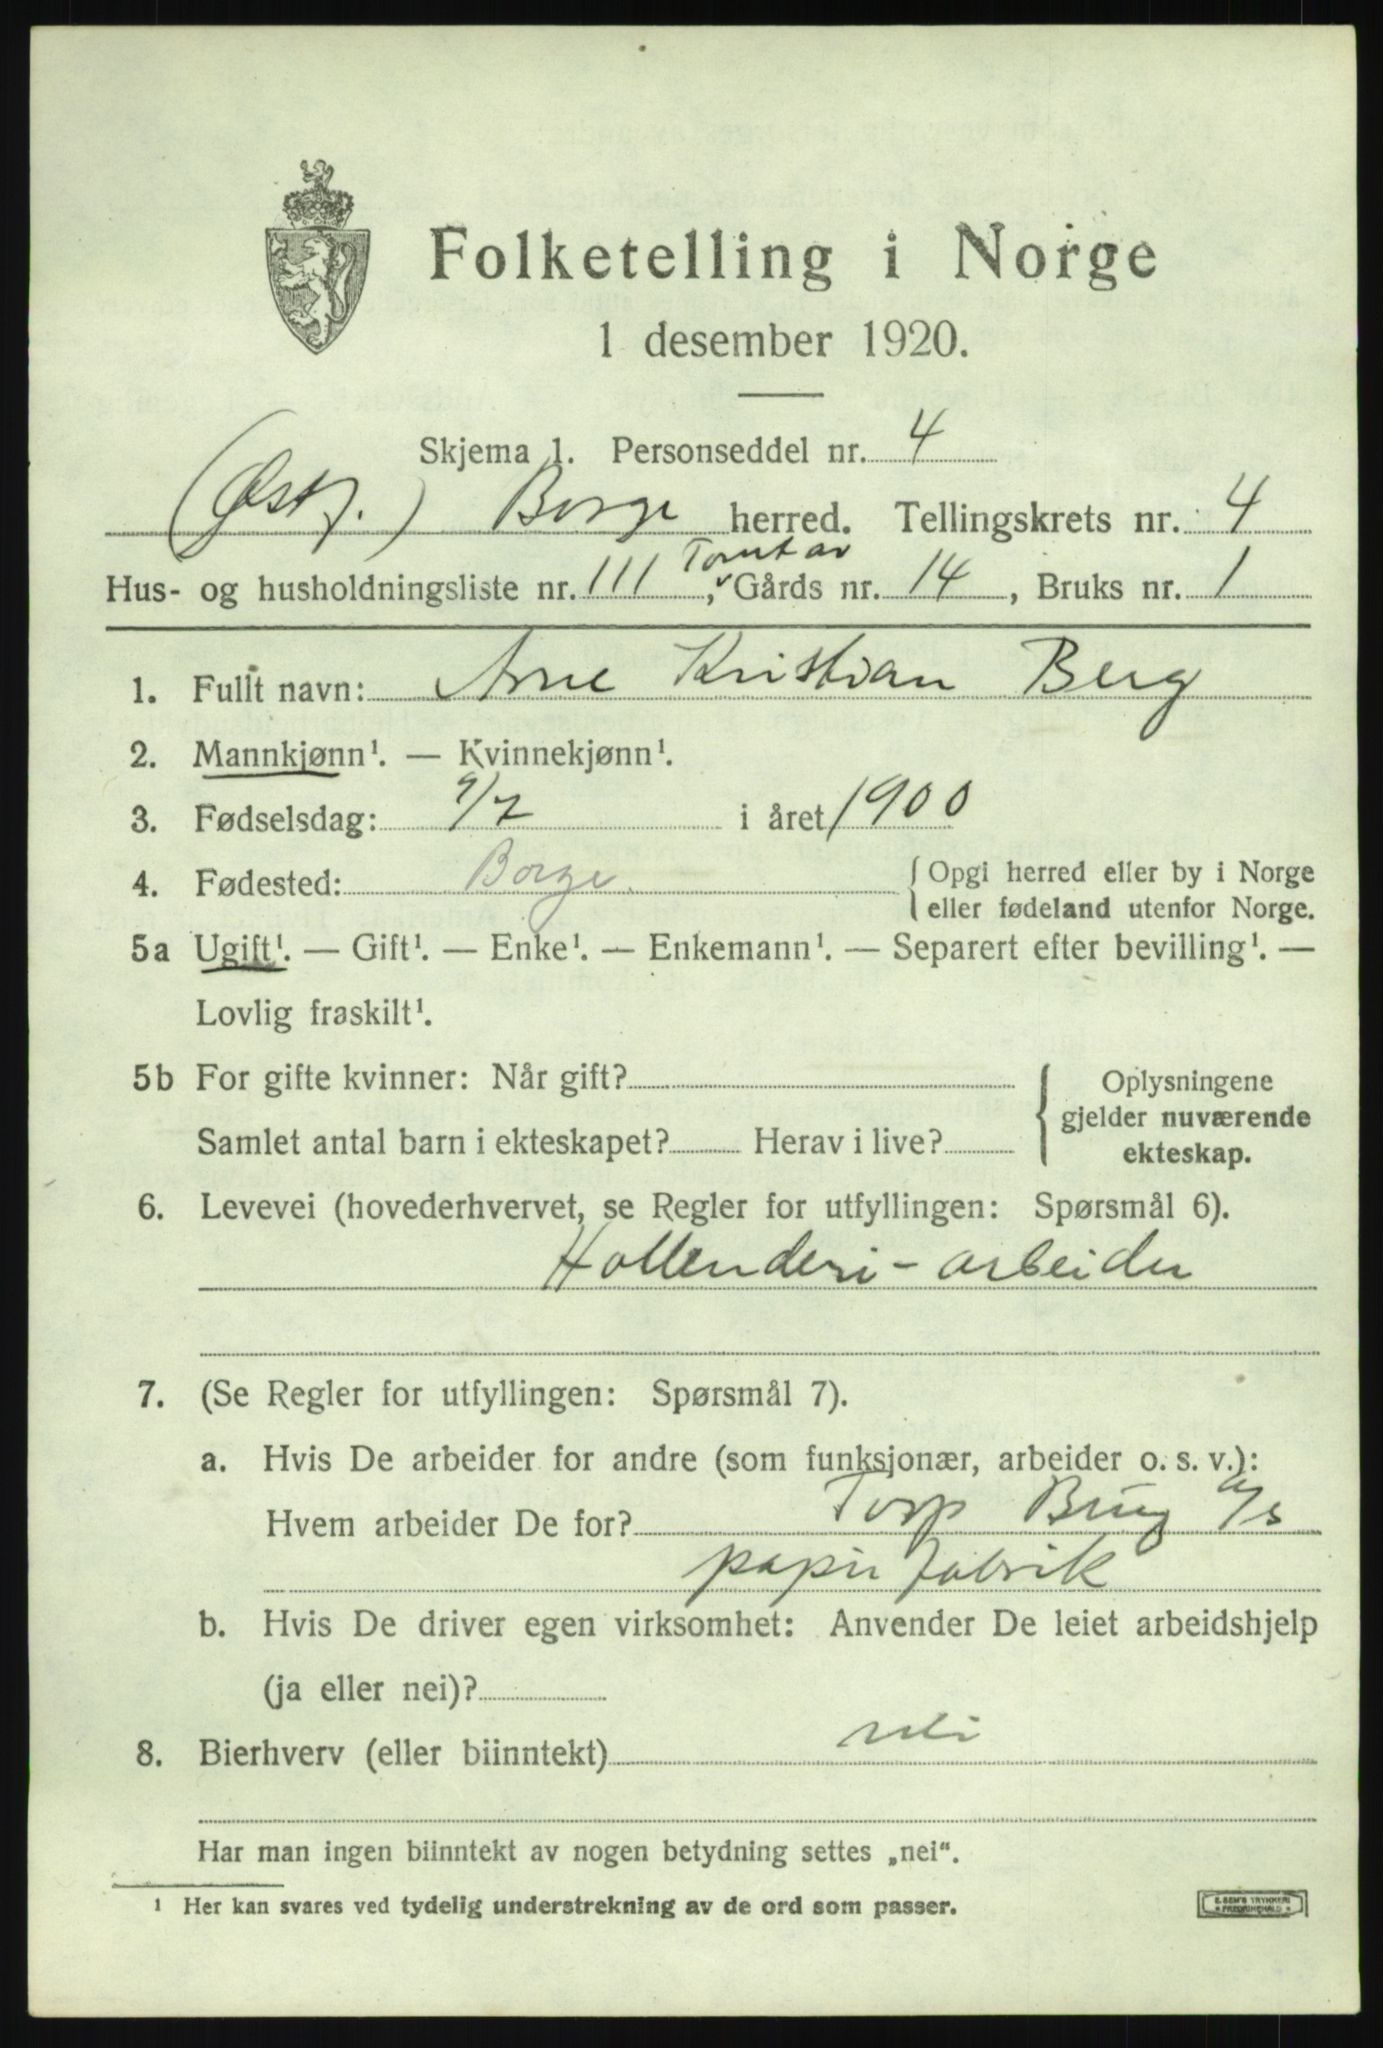 Folketelling i Norge
1 desember 1920.
Skjema 1. Personseddel nr. 4
(Østf.) Borge herred. Tellingskrets nr. 4
Tomt av
Hus- og husholdningsliste nr. 111, Gårds nr. 14, Bruks nr. 1
1. Fullt navn: Arne Kristian Berg
2. Mannkjønn¹. — Kvinnekjønn¹.
3. Fødselsdag: 9/7 i året 1900
4. Fødested: Borge. { Opgi herred eller by i Norge
eller fødeland utenfor Norge.
5a Ugift¹. — Gift¹. — Enke¹. — Enkemann¹. — Separert efter bevilling¹. —
Lovlig fraskilt¹.
5b For gifte kvinner: Når gift? { Oplysningene
gjelder nuværende
Samlet antal barn i ekteskapet? Herav i live?
ekteskap.
6. Levevei (hovederhvervet, se Regler for utfyllingen: Spørsmål 6).
Hollenderi-arbeider
7. (Se Regler for utfyllingen: Spørsmål 7).
a. Hvis De arbeider for andre (som funksjonær, arbeider o. s. v.):
Hvem arbeider De for? Torp Brug a/s
papirfabrik
b. Hvis De driver egen virksomhet: Anvender De leiet arbeidshjelp
(ja eller nei)?
8. Bierhverv (eller biinntekt) nei
Har man ingen biinntekt av nogen betydning settes „nei“.
¹ Her kan svares ved tydelig understrekning av de ord som passer.
E. SEM'S TRYKKERI
FREDRIKSHALD